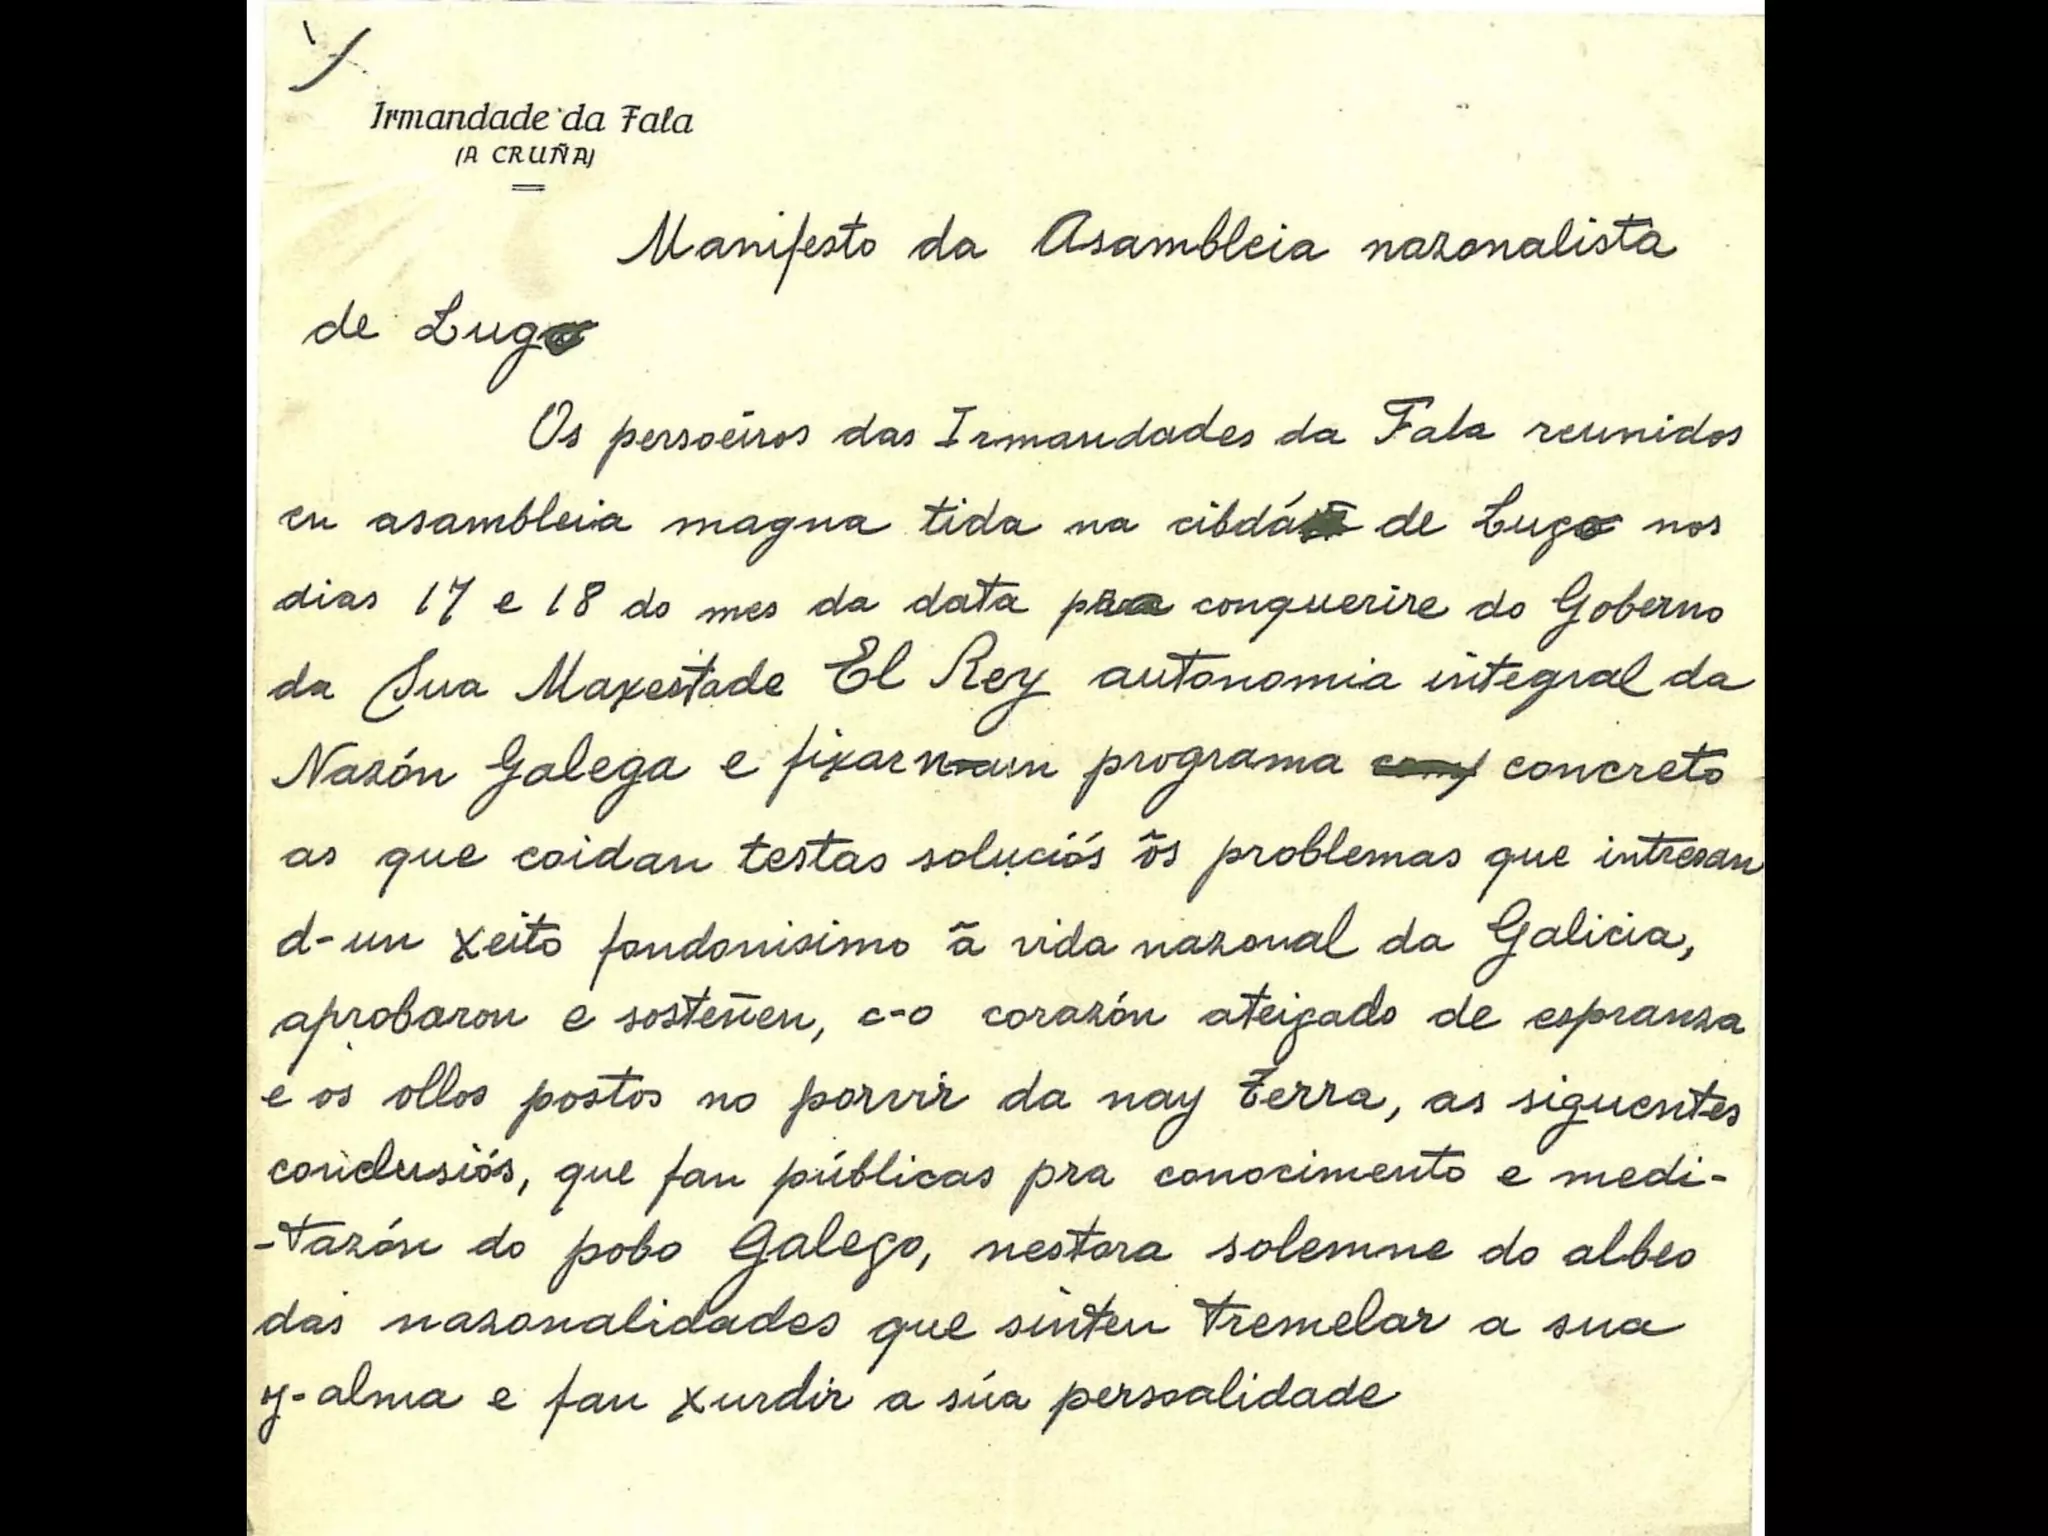 Irmandade da Fala
(A CRUÑA)
Manifesto da Asambleia nazonalista
de Lugo
Os persoeiros das Irmandades da Fala reunidos
en asambleia magna tida na cibdá de Lugo nos
dias 17 e 18 do mes da data pra conquerire do Goberno
da Sua Maxestade El Rey autonomia integral da
Nazón Galega e fixar un programa concreto
as que coidan testas soluciós õs problemas que intresan
d-un xeito fondonisimo ã vida nazonal da Galicia,
aprobaron e sosteñen, c-o corazón ateigado de espranza
e os ollos postos no porvir da nay Terra, as siguentes
conclusiós, que fan públicas pra conocimento e medi-
-tazón do pobo Galego, nestora solemne do albeo
das nazonalidades que sinten tremelar a sua
y-alma e fan xurdir a súa persoalidade